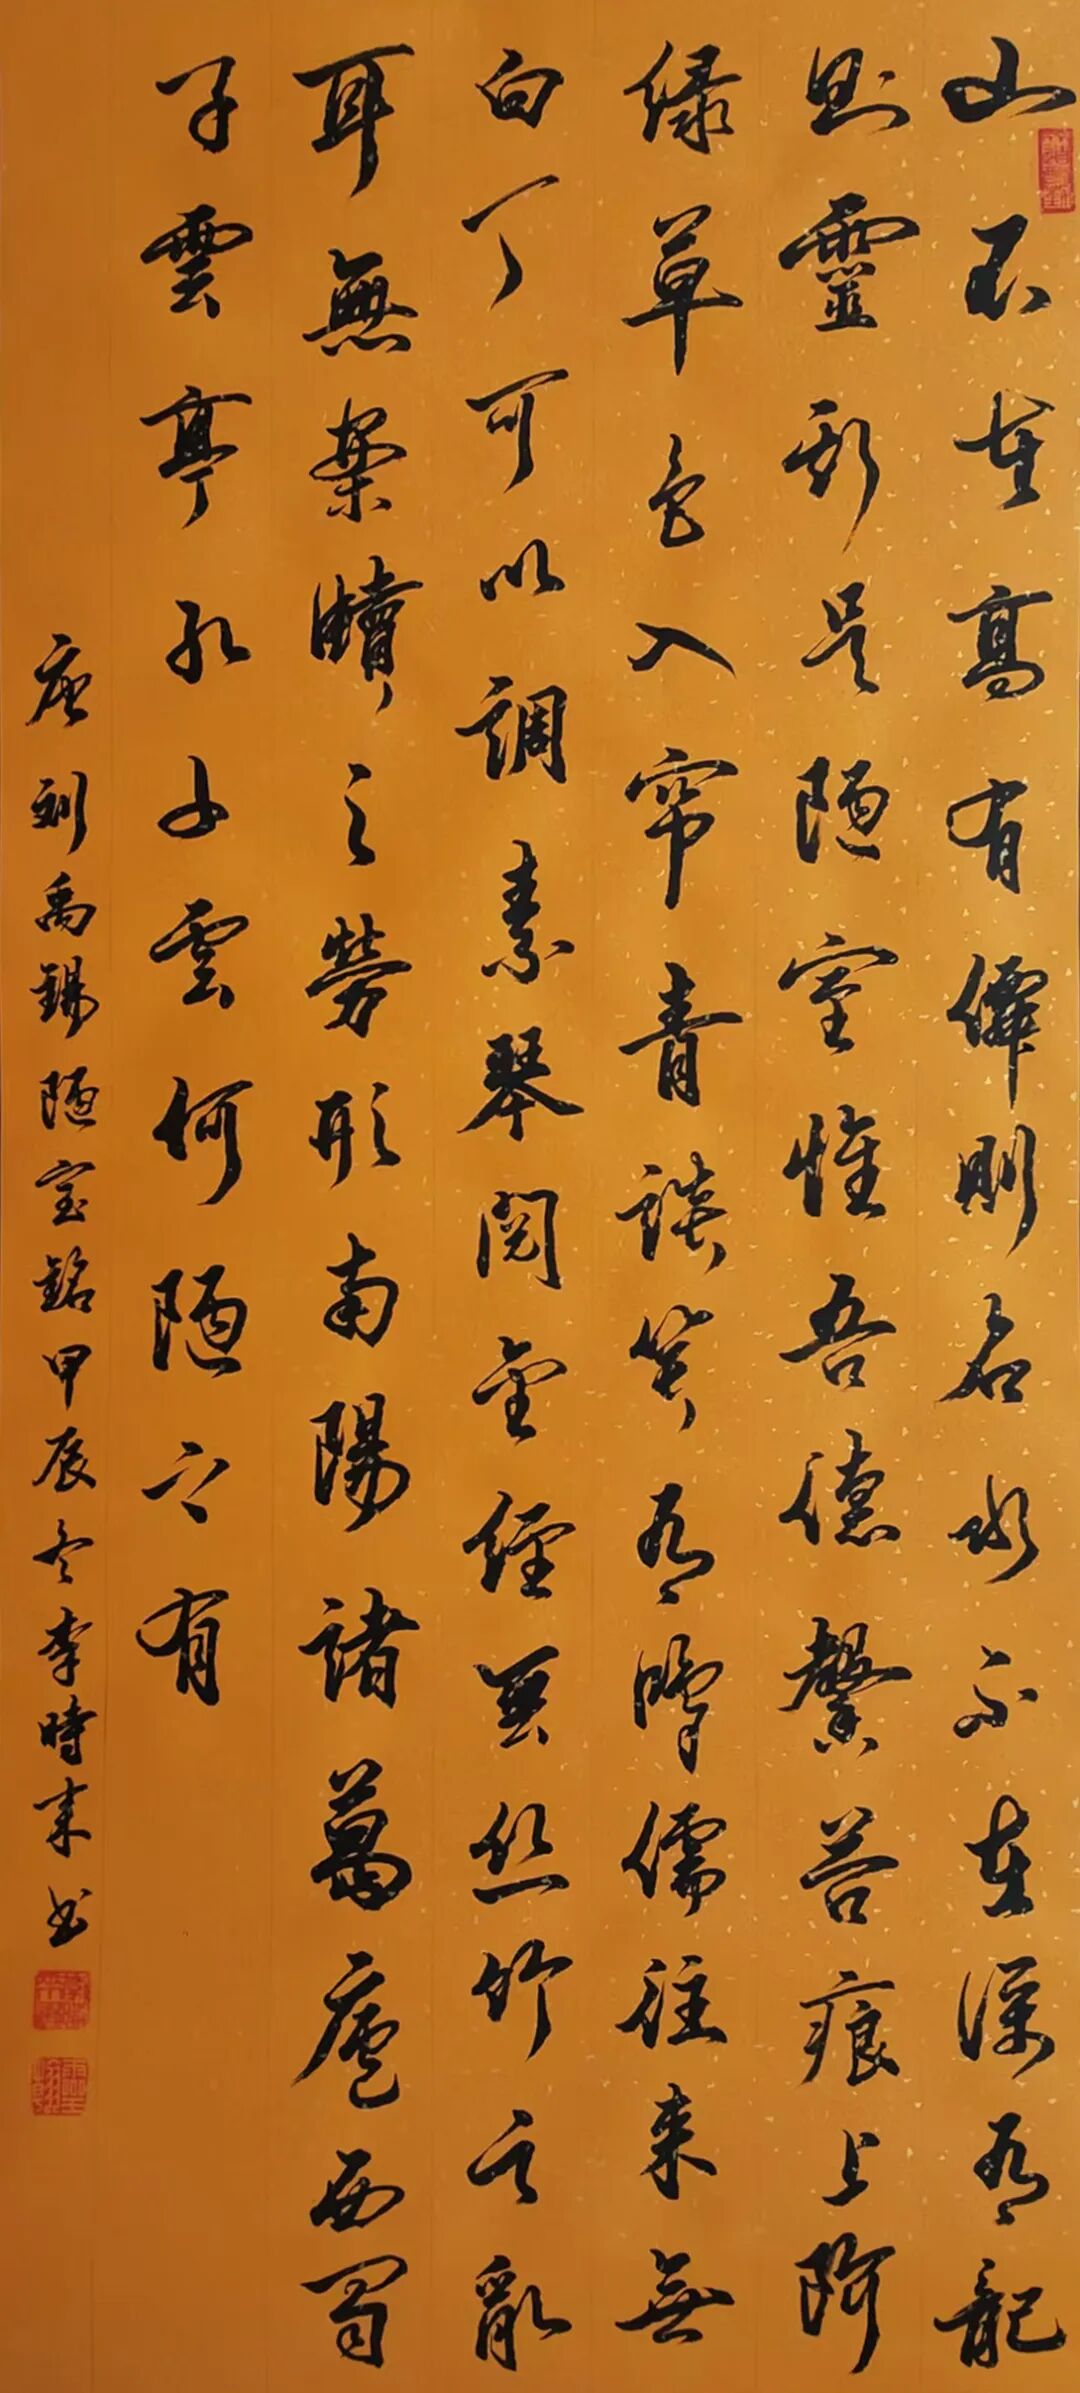 山不在高有僊則名水不在深有龍
則靈斯是陋室惟吾德馨苔痕上阿
緑草色入帘青談笑有鴻儒往来無
白丁可以調素琴閱金經無丝竹之亂
耳無案牘之勞形南陽諸葛廬西蜀
子雲亭孔子雲何陋之有
唐刘禹錫陋室銘甲辰冬李時来书